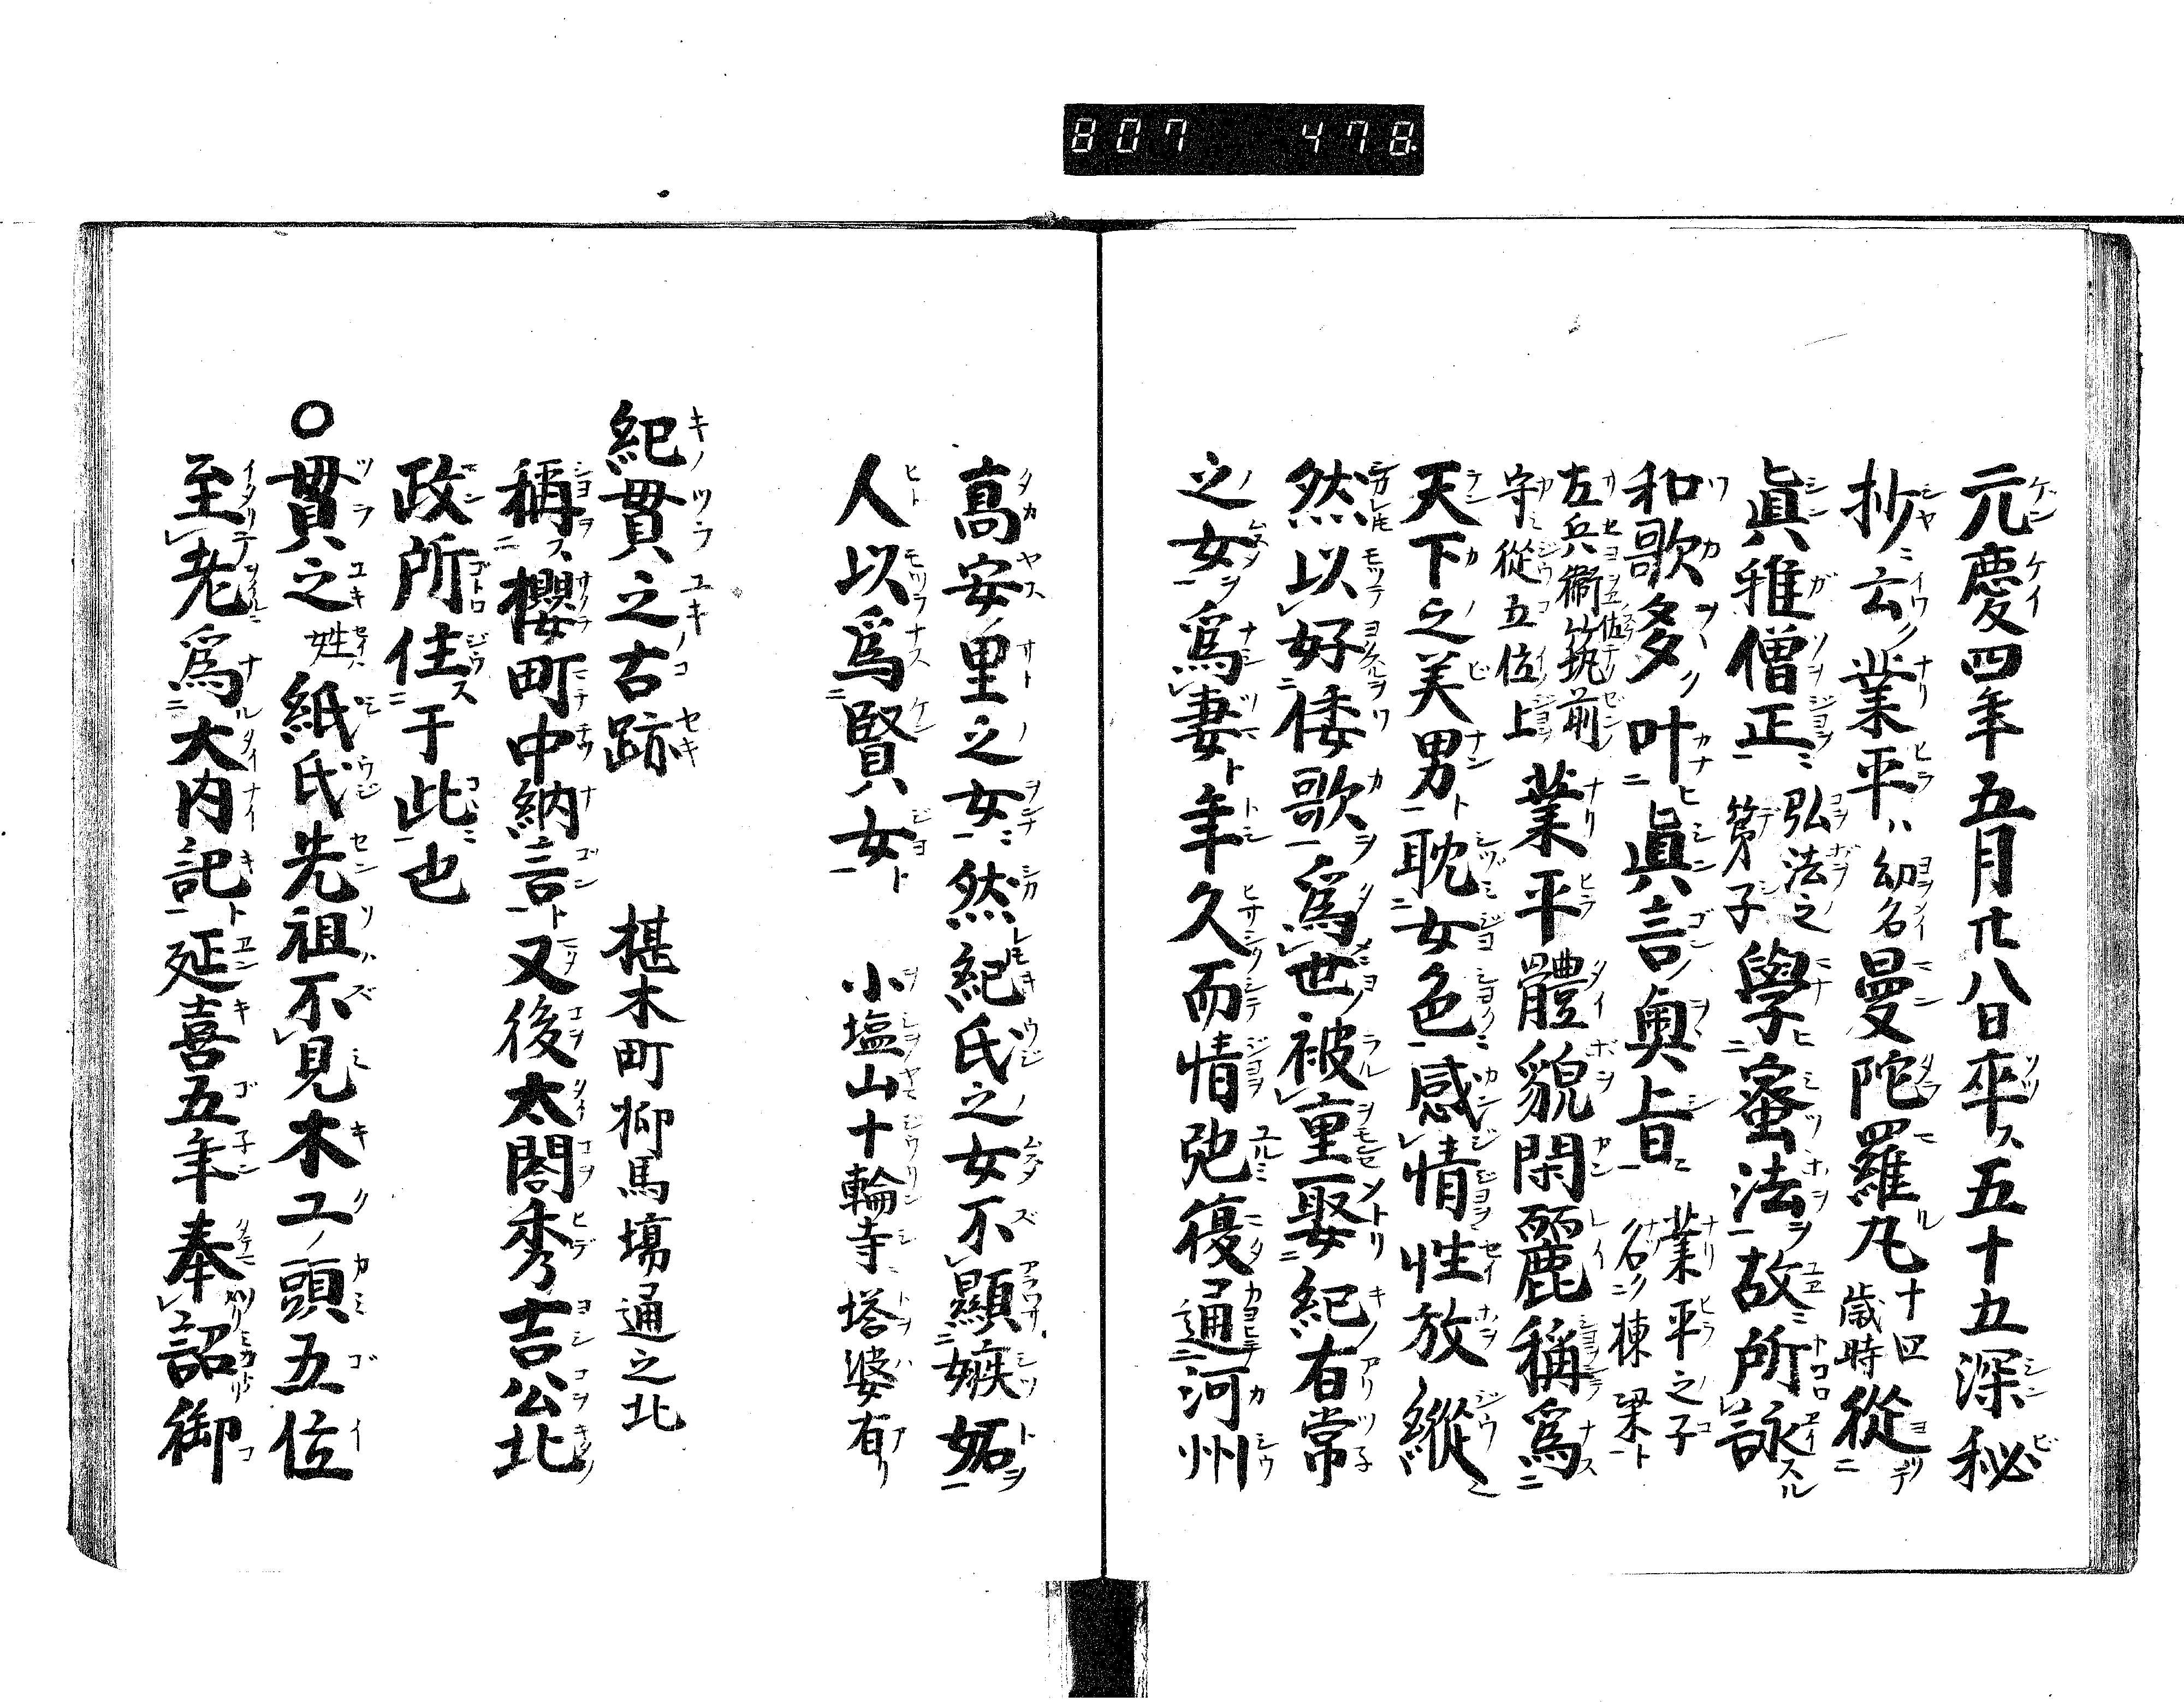 807 478
元慶四年五月廿八日卒ス五十五深秘
抄ニ云ク業平ハ幼名曼陀羅丸十四歳時從ニ
眞雅僧正ニ弘法之第子學ニ蜜法ヲ故ニ所詠スル
和歌多ク叶ニ眞言ノ奥旨ニ業平之子名ニ棟梁ト
左兵衛佐筑前守從五位上業平體貌閑麗稱爲ニ
天下之美男ト耽ニ女色ニ感情性放縱
然以好ニ倭歌ヲ爲世被重娶ニ紀有常
之女ヲ爲妻ト年久而情弛復通ニ河州
高安里之女ニ然紀氏之女不顯ニ嫉妬ヲ
人以爲ニ賢女ト 小塩山十輪寺ニ塔婆有リ
紀貫之古跡 椹木町柳馬塲通之北
稱スニ櫻町中納言ト又後太閤秀吉公北
政所住スニ于此ニ也
○貫之姓ハ紙氏先祖ハ不見木工ノ頭五位
至老爲ルニ大内記ト延喜五年奉詔御